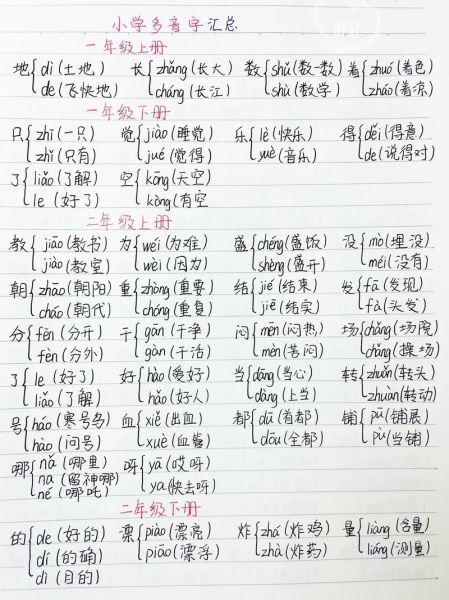 小学多音字汇总
一年级上册
地{dì(土地) 长{zhǎng(长大) 数{shǔ(数一数) 着{zhuó(着色)
de(飞快地) cháng(长江) shù(数学) zháo(着凉)
一年级下册
只{zhī(一只) 觉{jiào(睡觉) 乐{lè(快乐) 得{děi(得意)
zhǐ(只有) jué(觉得) yuè(音乐) de(说得对)
了{liǎo(了解) 空{kōng(天空)
le(好了) kòng(有空
二年级上册
教{jiāo(教书) 为{wéi(为难) 盛{chéng(盛饭) 没{mò(埋没)
jiào(教室) wèi(因为) shèng(盛开) méi(没有)
朝{zhāo(朝阳) 重{zhòng(重要) 结{jié(结束) 发{fā(发现)
cháo(朝代) chóng(重复) jiē(结实) fà(头发)
分{fēn(分开) 干{gān(干净) 闷{mēn(闷热) 场{cháng(场院)
fèn(分外) gàn(干活) mèn(苦闷) chǎng(操场)
了{le(好了) 好{hào(爱好) 当{dāng(当心) 转{zhuǎn(转头)
liǎo(了解) hǎo(好人) dàng(上当) zhuàn(转动)
号{háo(寒号鸟) 血{xiě(出血) 都{dū(首都) 铺{pū(铺展)
hào(问号) xuè(血管) dōu(全都) pù(当铺)
哪{nǎ(哪里) 呀{yā(哎呀)
na(留神哪) ya(快去呀)
né(哪吒)
二年级下册
的{de(好的) 漂{piào(漂亮) 炸{zhá(炸鸡) 量{liàng(含量)
dí(的确) piāo(漂浮) zhà(炸药) liáng(测量)
dì(目的)